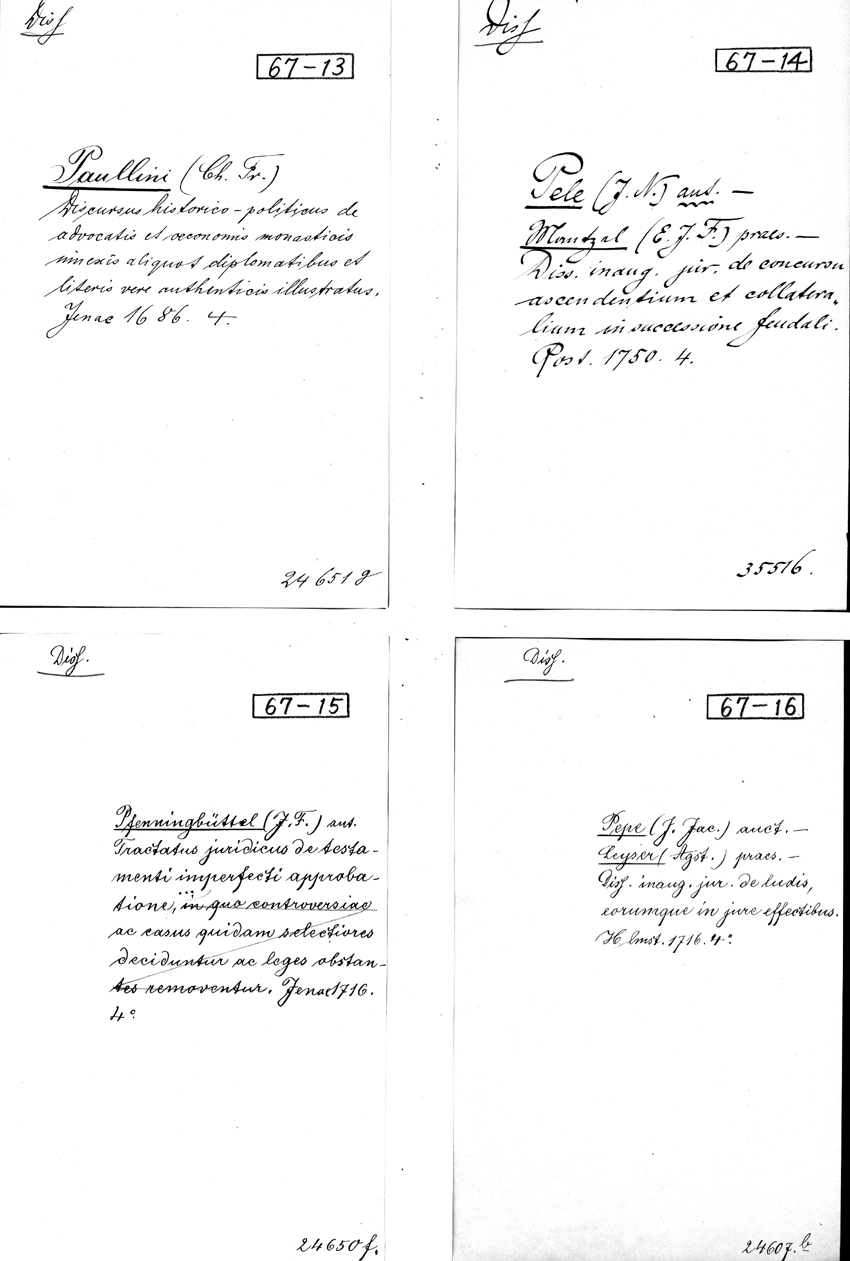 Diss
67-13
Paullini (Ch. Fr.)
Discursus historico-politicus de
advocatis et oeconomis monasticis
nnexis aliquot diplomatibus et
literis vere authenticis illustratus.
Jenae 1686. 4.
24651g
Diss
67-14
Pele (J. N.) aut. —
Mantzel (E. J. F.) praes. —
Diss. inaug. jur. de concursu
ascendentium et collatera-
lium in successione feudali.
Rost. 1750. 4.
35516.
Diss.
67-15
Pfenningbüttel (J. F.) aut.
Tractatus juridicus de testa-
menti imperfecti approba-
tione, in quo controversiae
ac casus quidam selectiores
deciduntur ac leges obstan-
tes removentur. Jenae 1716.
4°
24650f.
Diss.
67-16
Pepe (J. Jac.) auct. —
Leyser (Agst.) praes. —
Diss. inaug. jur. de ludis,
eorumque in jure effectibus.
Hlmst. 1716. 4°
24607.b